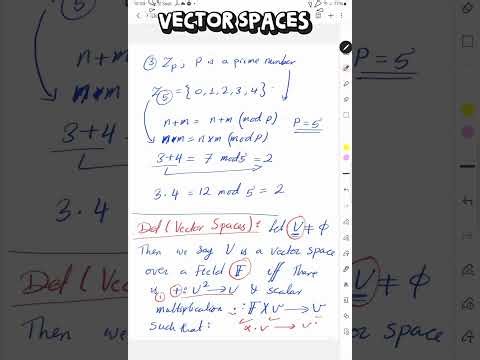 VECTOR SPACES
③ Zp, P is a prime number
Z5 = {0,1,2,3,4}.
n+m = n+m (mod P) P=5
n*m = n×m (mod P)
3+4 = 7 mod 5 = 2
3.4 = 12 mod 5 = 2
Def (Vector Spaces): Let V ≠ ϕ
Then we say V is a vector space
over a field F iff There
is ① +: V² → V & scalar
multiplication .: F × V → V
such that: α.v → v